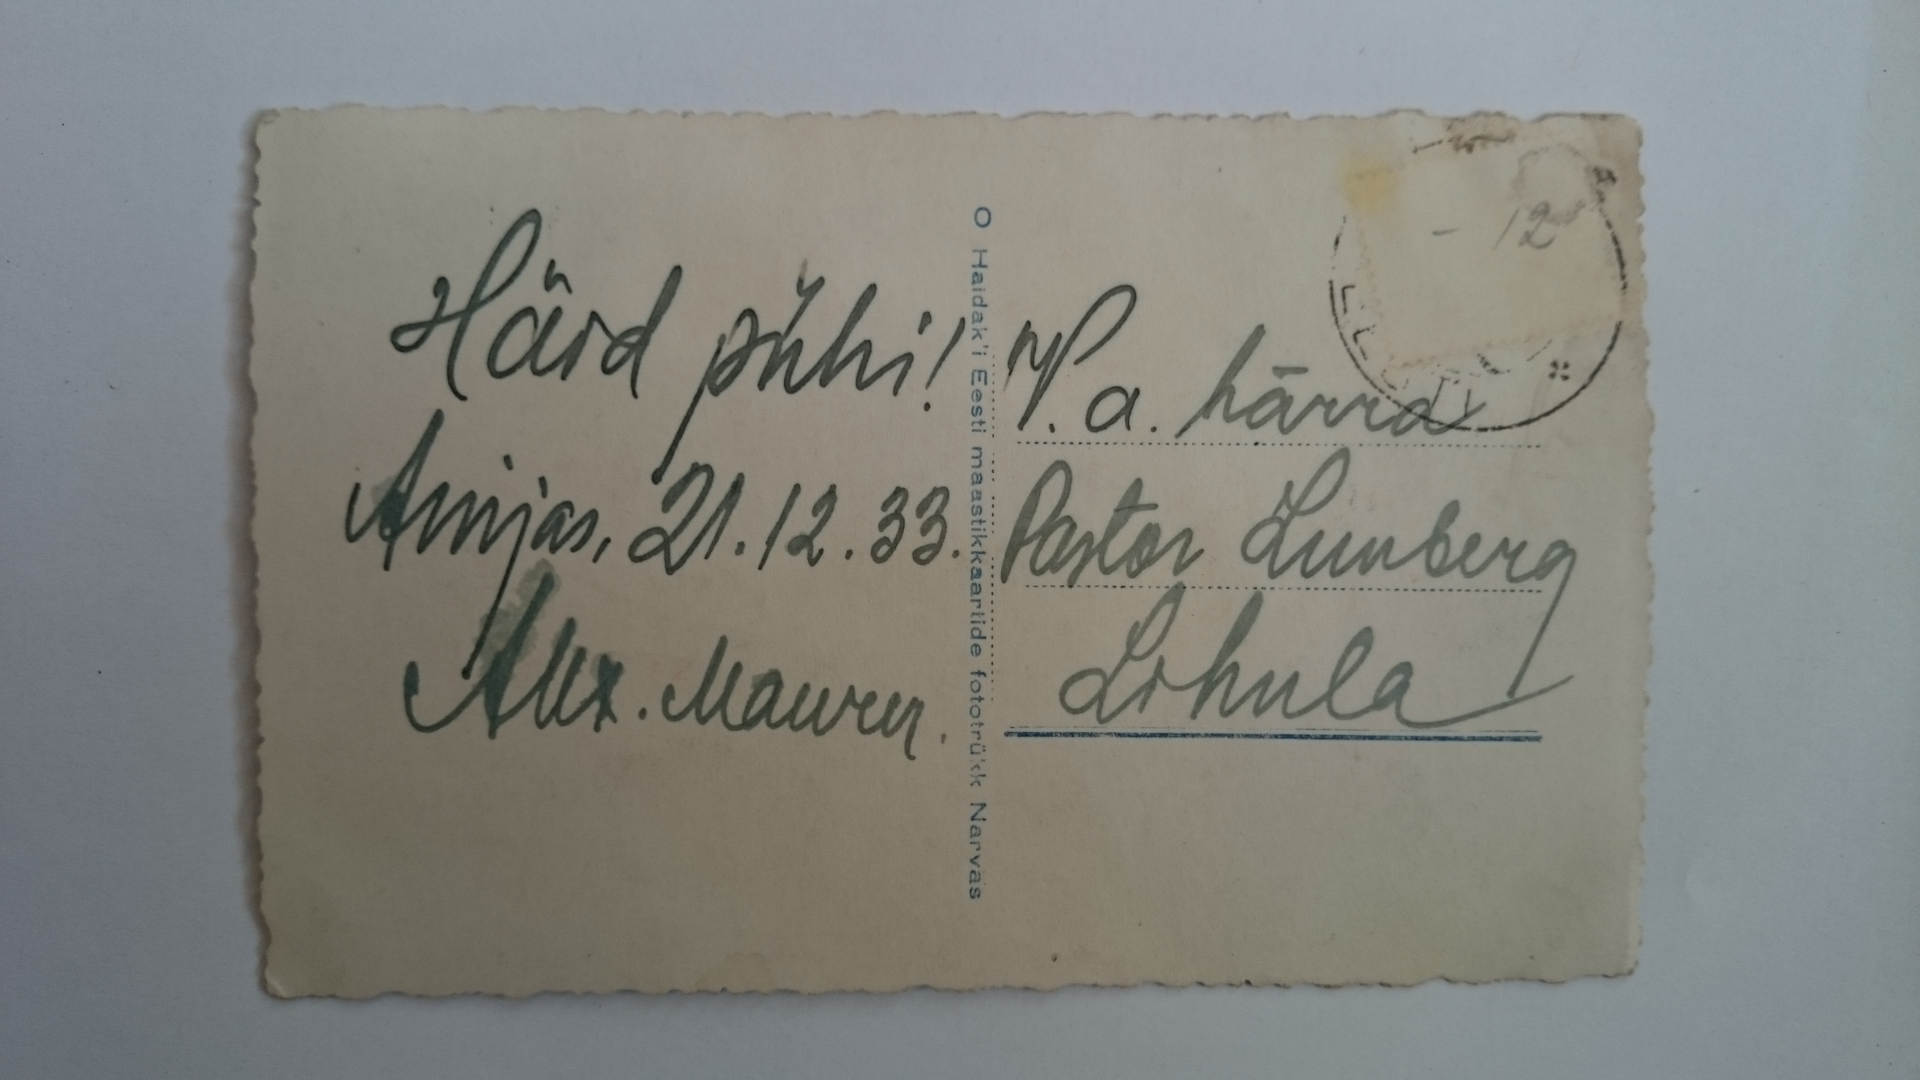 Häid pühi!
Amijas, 21.12.33.
Alex. Maurer.
O Haidak'i Eesti maastikkaartide fototrükk Narvas
- 12
V. a. härra
Pastor Lunberg
Lihula